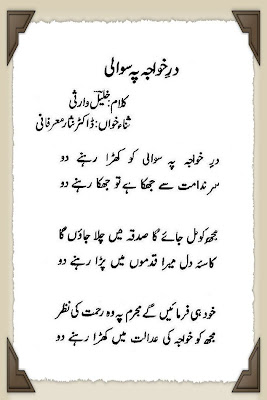 درِ خواجہ پہ سوالی
کلام: خلیل وارثی
ثناء خواں: ڈاکٹر نثار معرفانی
درِ خواجہ پہ سوالی کو کھڑا رہنے دو
سر ندامت سے جھکا ہے تو جھکا رہنے دو
مجھ کو مل جائے گا صدقہ میں چلا جاؤں گا
کاسۂ دل میرا قدموں میں پڑا رہنے دو
خود ہی فرمائیں گے مجرم پہ وہ رحمت کی نظر
مجھ کو خواجہ کی عدالت میں کھڑا رہنے دو